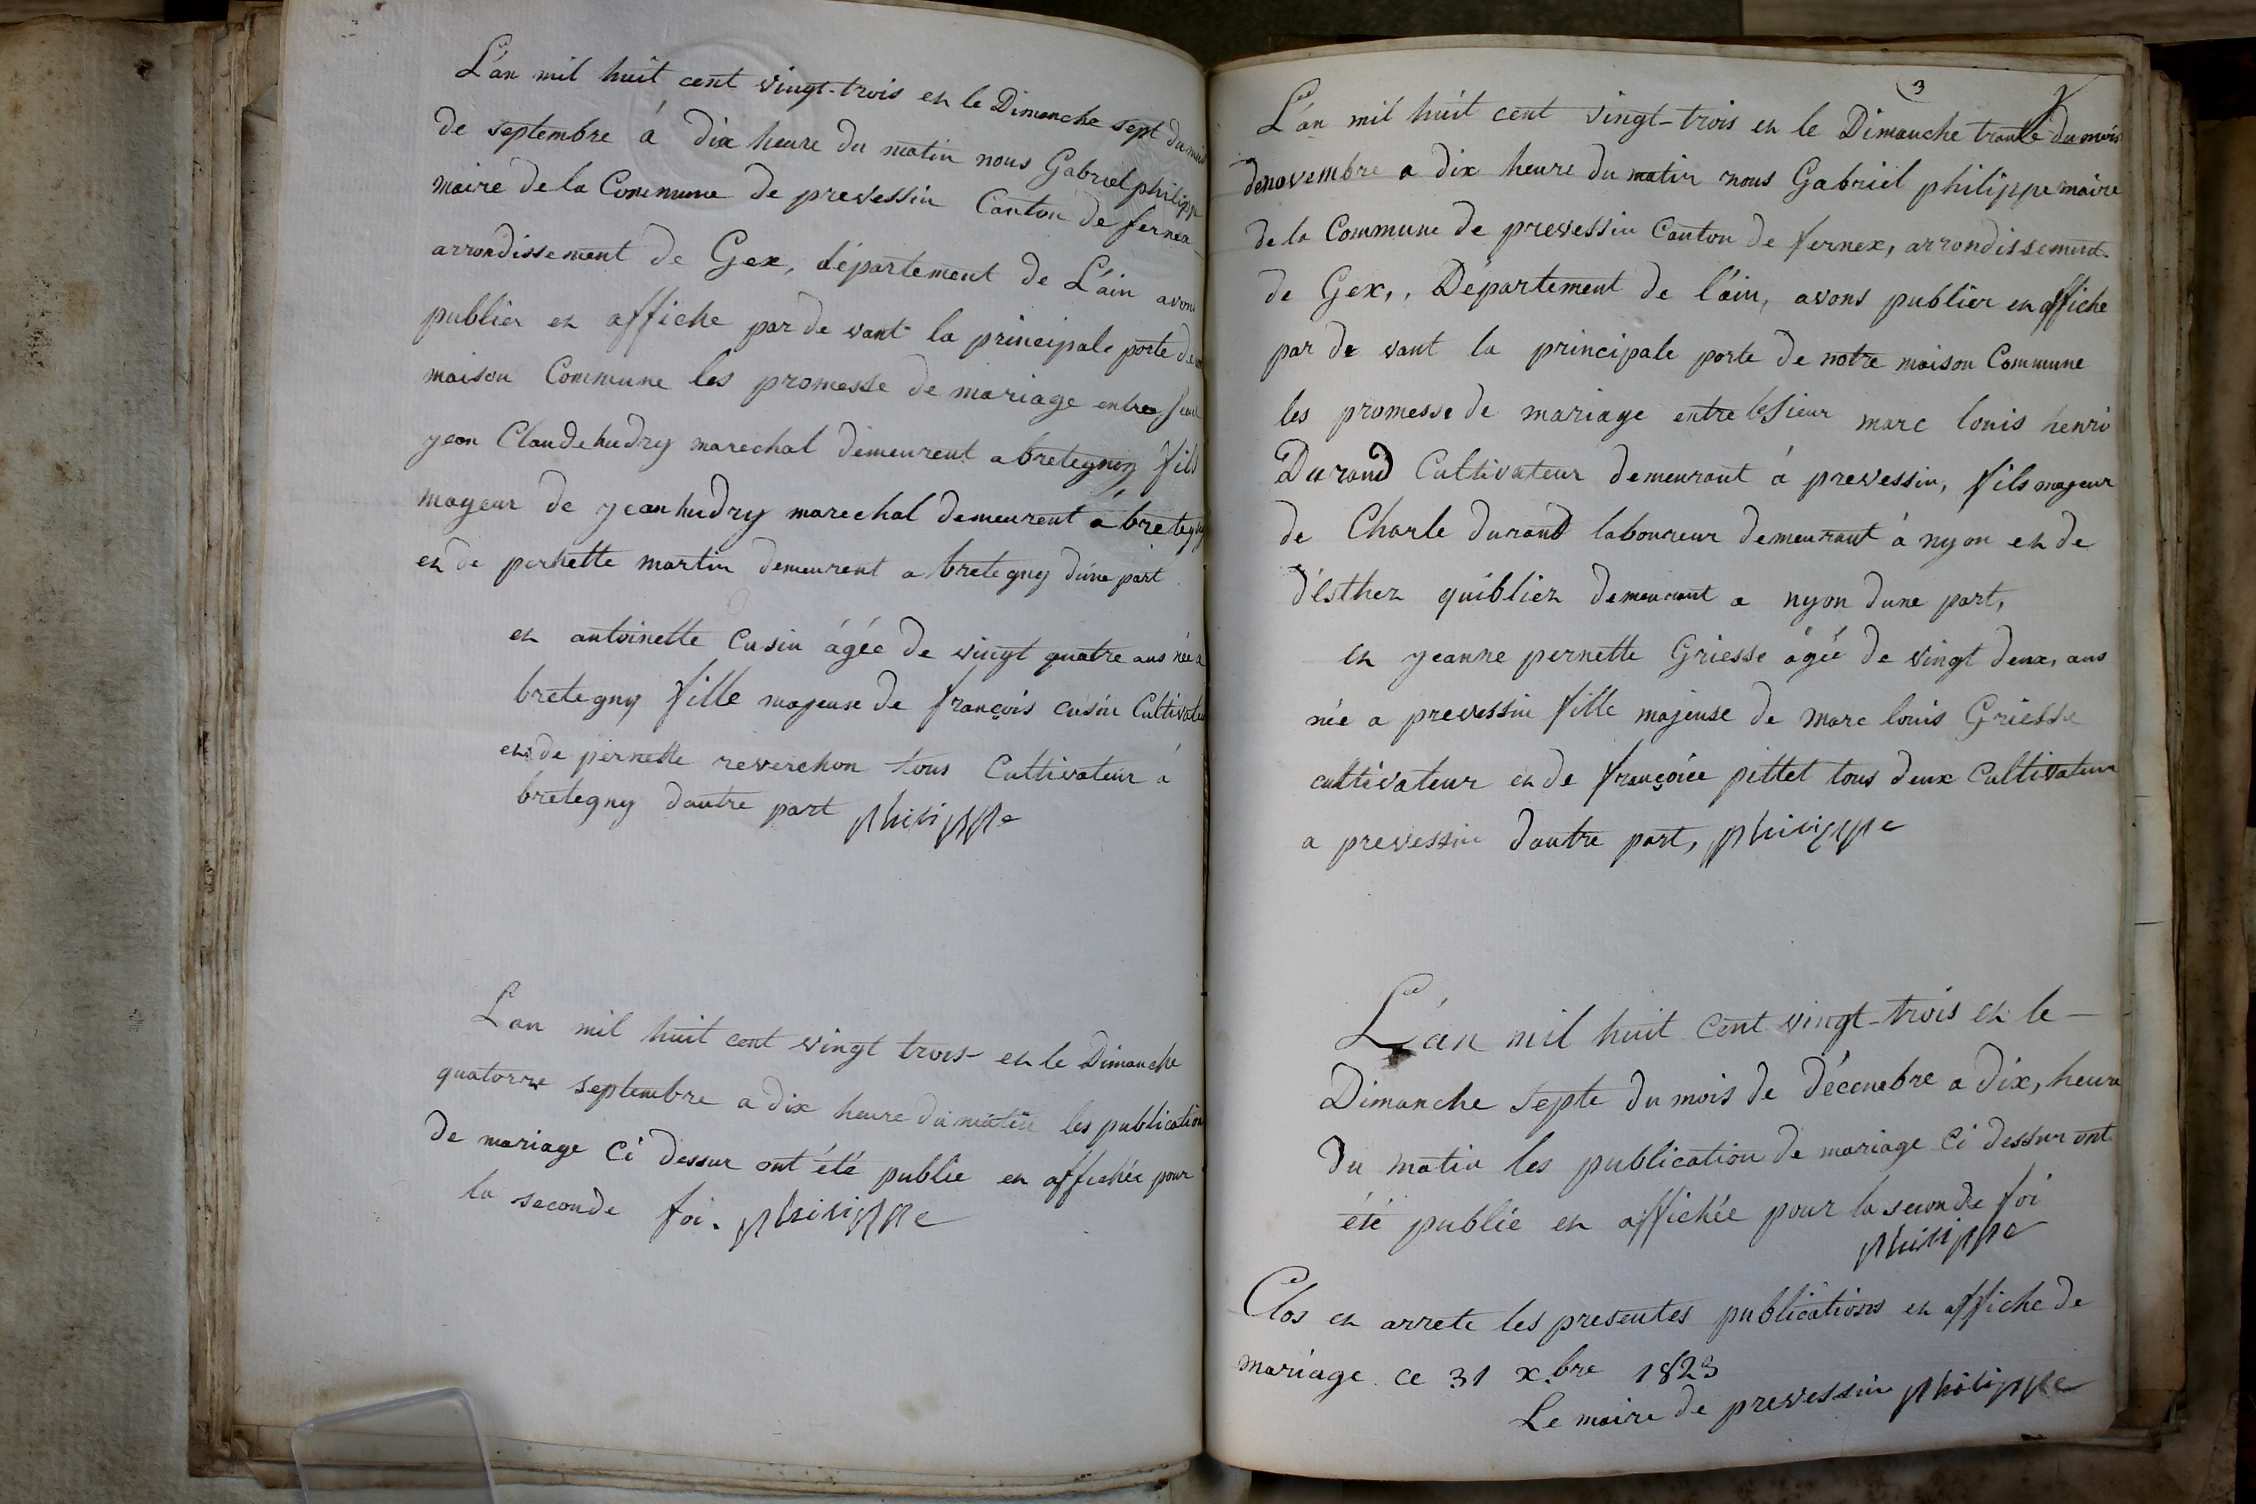 L'an mil huit cent vingt-trois en le Dimanche sept du mois
de septembre á dix heure du matin nous Gabriel philippe
maire de la Commune de prevessin Canton de fernex
arrondissement de Gex, département de L'ain avons
publier en affiche par de vant la principale porte de
maison Commune les promesse de mariage entre
jean Claude hudry marechal demeurent a bretegny fils
mageur de jean hudry marechal demeurent á bretegny
en de pernette martin demeurent a bretegny d'une part
en antoinette Cusin ágée de vingt quatre ans née a
bretegny fille majeuse de françois cusin Cultivateur
en de pernette reverchon tous Cultivateur á
bretegny dautre part philippe
L'an mil huit cent vingt trois en le Dimanche
quatorze septembre a dix heure du matin les publication
de mariage Ci dessur ont été publie en affichée pour
la seconde foi. philippe
3
L'an mil huit cent vingt-trois en le Dimanche trante du mois
de novembre a dix heure du matin nous Gabriel philippe maire
de la Commune de prevessin Canton de fernex, arrondissement
de Gex,, Département de l'ain, avons publier en affiche
par de vant la principale porte de notre maison Commune
les promesse de mariage entre le sieur marc louis henri
Durand Cultivateur demeurant á prevessin, fils mageur
de Charle durand laboureur demeurant á nyon en de
d'esther quiblier demeurant a nyon dune part,
en jeanne pernette Griesse ágée de vingt deux, ans
née a prevessin fille majeuse de marc louis Griesse
cultivateur en de françoice pittet tous deux Cultivateur
a prevessin dautre part, philippe
L'an mil huit cent vingt-trois en le
Dimanche septe du mois de décembre a dix, heure
du matin les publication de mariage Ci dessur ont
été publie en affichée pour la seconde foi
philippe
Clos en arrete les presentes publications en affiche de
mariage ce 31 x.bre 1823
Le maire de prevessin philippe